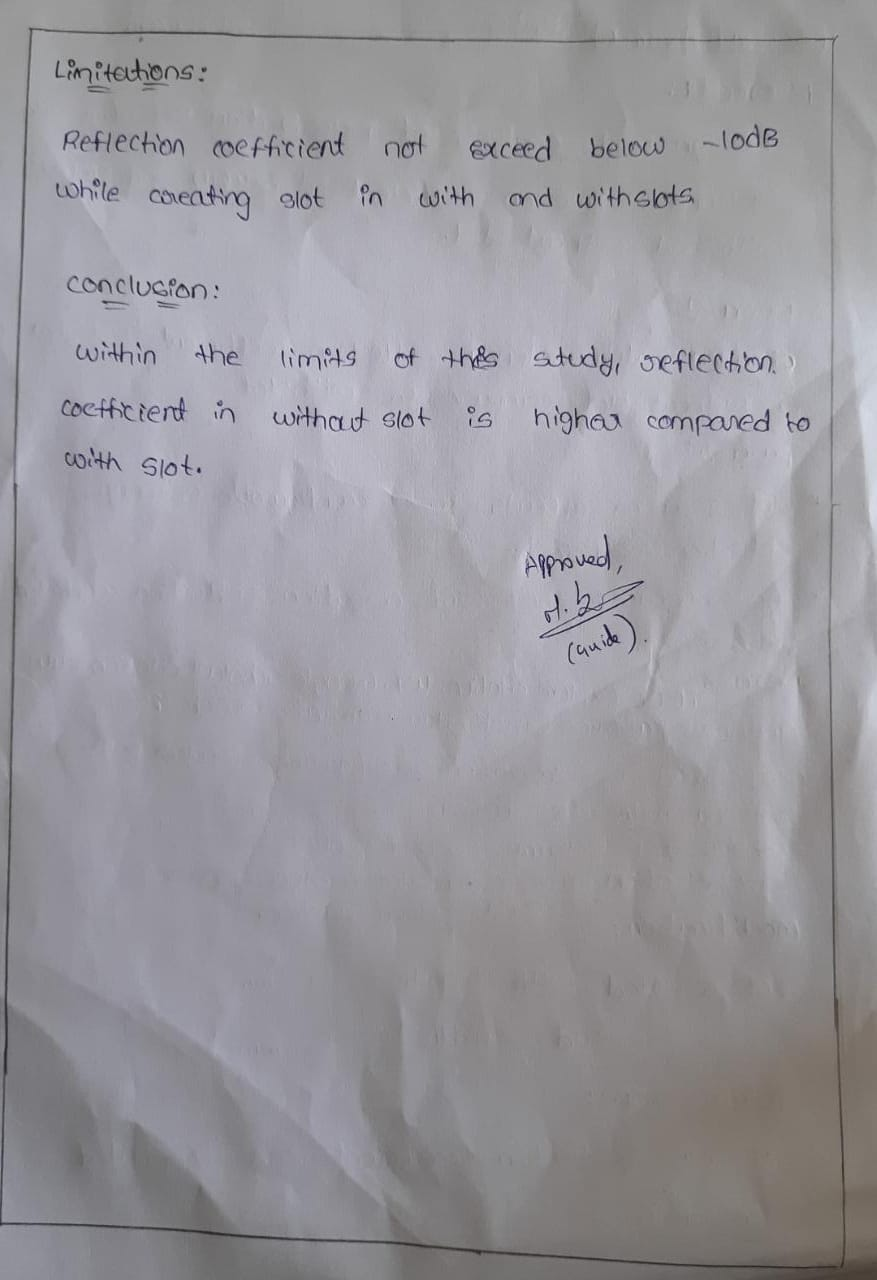 Limitations:
Reflection coefficient not exceed below -10dB
while creating slot in with and withslots
conclusion:
within the limits of this study, reflection
coefficient in without slot is higher compared to
with slot.
Approved,
(guide).